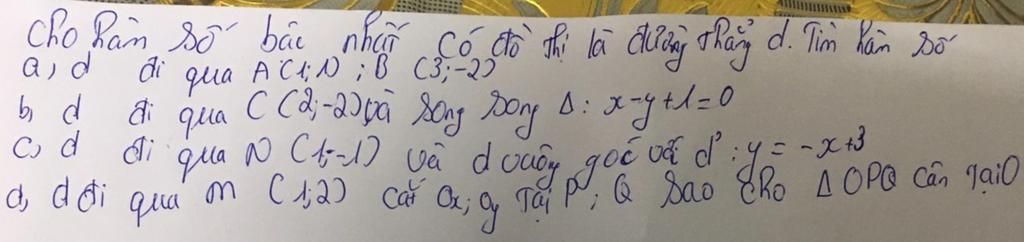 Cho hàm số bậc nhất có đồ thị là đường thẳng d. Tìm hàm số
a, d đi qua A(1;1) ; B (3;-2)
b, d đi qua C (2;-2) và song song Δ: x-y+1=0
c, d đi qua N (1;-1) và d vuông góc với d': y = -x+3
d, d đi qua M (1;2) cắt Ox; Oy tại P; Q sao cho Δ OPQ cân tại O